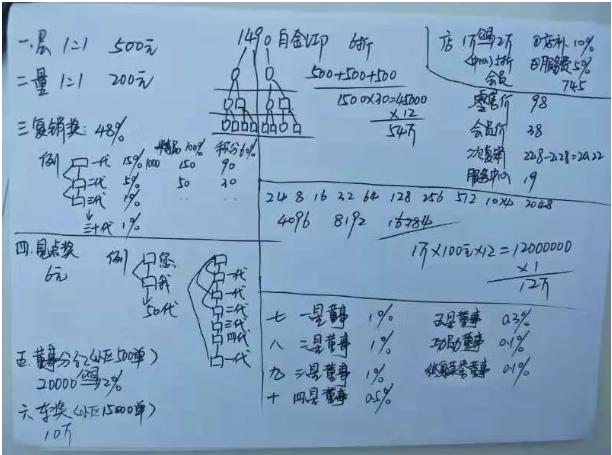 一.层 1:1 500元
二.量 1:1 200元
三.复销奖: 48%
例
一代 15% 1000 150 90
精品100% 积分60%
二代 5% 50 30
三代 1%
三十代 1%
1490 白金VIP 6折
500+500+500
1500×30=45000
×12
54万
店 1万 2万 ①店补10%
5折 ②服务费5%
会员 745
零售价 98
会员价 38
228-2.28=
服务中心 19
2 4 8 16 32 64 128 256 512 1024 2048
4096 8192 16384
1万×100元×12=12000000
×1
12万
四.见点奖
6元
例
您
我
50代
一代
一代
二代
三代
四代
一代
五.董事分红(小区500单)
20000 2%
六.车奖(小区15000单)
10万
七 一星董事 1% 五星董事 0.2%
八 二星董事 1% 功勋董事 0.1%
九 三星董事 1% 终身荣誉董事 0.1%
十 四星董事 0.5%